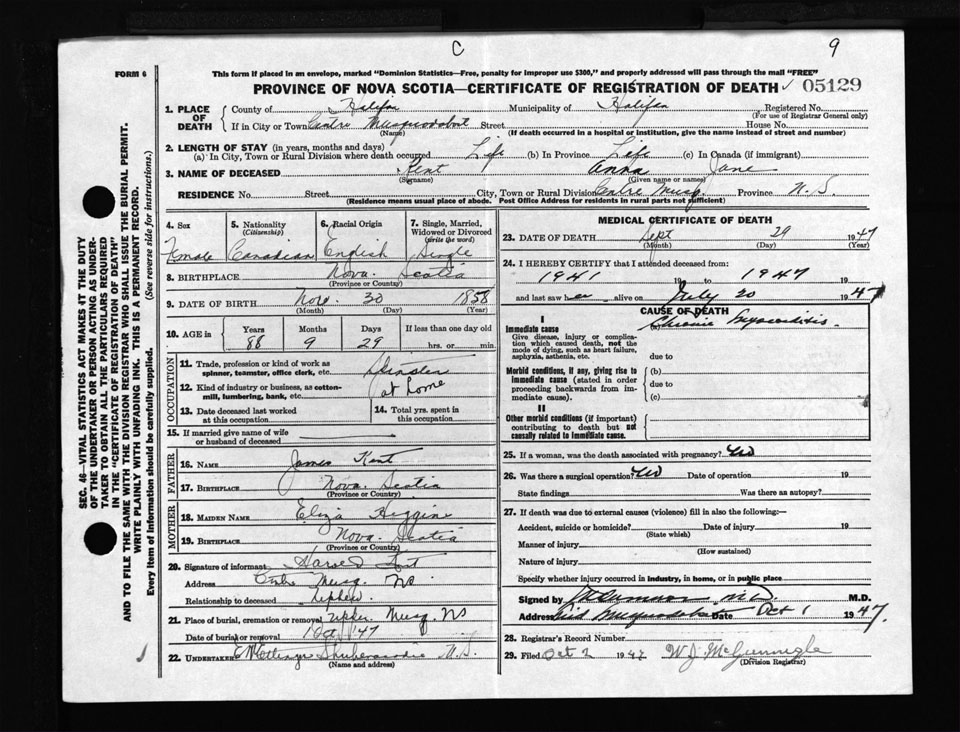 C
9
FORM 6
This form if placed in an envelope, marked "Dominion Statistics—Free, penalty for improper use $300," and properly addressed will pass through the mail "FREE"
PROVINCE OF NOVA SCOTIA—CERTIFICATE OF REGISTRATION OF DEATH 05129
1. PLACE OF DEATH County of Halifax Municipality of Halifax Registered No.
(For use of Registrar General only)
If in City or Town Centre Musquodoboit Street House No.
(Name) (If death occurred in a hospital or institution, give the name instead of street and number)
2. LENGTH OF STAY (in years, months and days)
(a) In City, Town or Rural Division where death occurred Life (b) In Province Life (c) In Canada (if immigrant)
3. NAME OF DECEASED Kent Anna Jane
(Surname) (Given name or names)
RESIDENCE No. Street City, Town or Rural Division Centre Musq. Province N.S.
(Residence means usual place of abode. Post Office Address for residents in rural parts not sufficient)
4. Sex 5. Nationality (Citizenship) 6. Racial Origin 7. Single, Married, Widowed or Divorced (write the word)
Female Canadian English Single
8. BIRTHPLACE Nova Scotia
(Province or Country)
9. DATE OF BIRTH Nov. 30 1858
(Month) (Day) (Year)
10. AGE in Years Months Days If less than one day old
88 9 29 hrs. or min.
OCCUPATION
11. Trade, profession or kind of work as spinner, teamster, office clerk, etc. Spinster
12. Kind of industry or business, as cotton-mill, lumbering, bank, etc. at home
13. Date deceased last worked at this occupation 14. Total yrs. spent in this occupation
15. If married give name of wife or husband of deceased
FATHER
16. NAME James Kent
17. BIRTHPLACE Nova Scotia
(Province or Country)
MOTHER
18. MAIDEN NAME Eliza Higgins
19. BIRTHPLACE Nova Scotia
(Province or Country)
20. Signature of informant Harold Kent
Address Centre Musq. NS
Relationship to deceased nephew
21. Place of burial, cremation or removal Upper Musq. NS
Date of burial or removal 1 Oct '47
22. UNDERTAKER Shubenacadie N.S.
(Name and address)
MEDICAL CERTIFICATE OF DEATH
23. DATE OF DEATH Sept 29 1947
(Month) (Day) (Year)
24. I HEREBY CERTIFY that I attended deceased from:
1941 19 to 1947 19
and last saw her alive on July 20 1947
CAUSE OF DEATH
I
Immediate cause Chronic Myocarditis.
Give disease, injury or complication which caused death, not the mode of dying, such as heart failure, asphyxia, asthenia, etc. due to
Morbid conditions, if any, giving rise to immediate cause (stated in order proceeding backwards from immediate cause). (b)
due to
(c)
II
Other morbid conditions (if important) contributing to death but not causally related to immediate cause.
25. If a woman, was the death associated with pregnancy? No
26. Was there a surgical operation? No Date of operation 19
State findings Was there an autopsy?
27. If death was due to external causes (violence) fill in also the following:—
Accident, suicide or homicide? Date of injury 19
(State which)
Manner of injury
(How sustained)
Nature of injury
Specify whether injury occurred in industry, in home, or in public place
Signed by M.D.
Address Mid Musquodoboit Date Oct 1 1947.
28. Registrar's Record Number
29. Filed Oct 2 1947 W J McGunnigle
(Division Registrar)
SEC. 46—VITAL STATISTICS ACT MAKES AT THE DUTY
OF THE UNDERTAKER OR PERSON ACTING AS UNDER-
TAKER TO OBTAIN ALL THE PARTICULARS REQUIRED
IN THE "CERTIFICATE OF REGISTRATION OF DEATH"
AND TO FILE THE SAME WITH THE DIVISION REGISTRAR WHO SHALL ISSUE THE BURIAL PERMIT.
WRITE PLAINLY WITH UNFADING INK. THIS IS A PERMANENT RECORD.
Every item of Information should be carefully supplied. (See reverse side for instructions.)